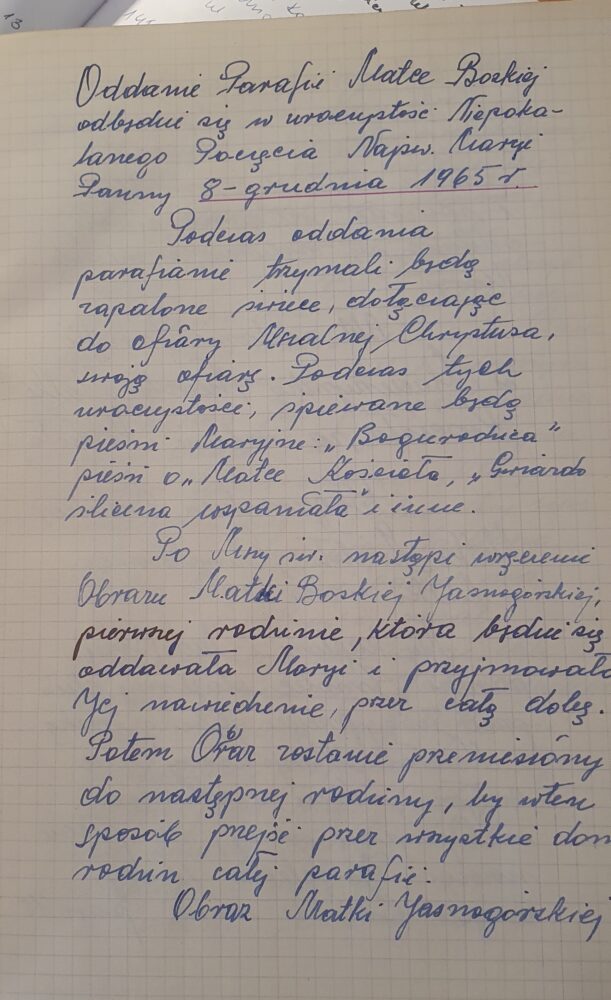 13
Oddanie Parafii Matce Boskiej
odbędzie się w uroczystość Niepoka-
lanego Poczęcia Najśw. Maryi
Panny 8-grudnia 1965 r.
Podczas oddania
parafianie trzymali będą
zapalone świece, dołączając
do ofiary Mszalnej Chrystusa,
swoją ofiarę. Podczas tych
uroczystości, śpiewane będą
pieśni Maryjne: „Bogurodzica”
pieśń o „Matce Kościoła, „Gwiazdo
śliczna wspaniała” i inne.
Po Mszy św. nastąpi wręczenie
Obrazu Matki Boskiej Jasnogórskiej,
pierwszej rodzinie, która będzie się
oddawała Maryi i przyjmowała
Jej nawiedzenie, przez całą dobę.
Potem Obraz zostanie przeniesiony
do następnej rodziny, by w ten
sposób przejść przez wszystkie dom
rodzin całej parafii.
Obraz Matki Jasnogórskiej